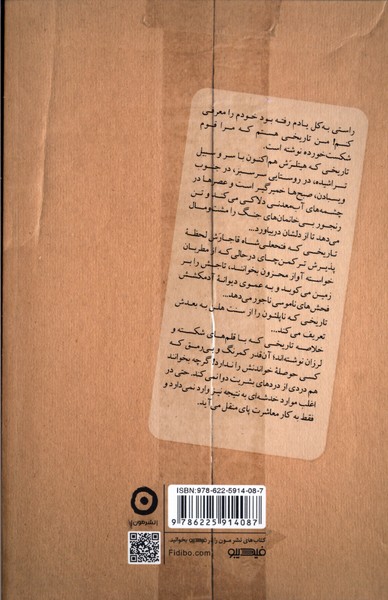 راستی به‌کل یادم رفته بود خودم را معرفی
کنم! من تاریخی هستم که مرا قوم
شکست‌خورده نوشته است.
تاریخی که هیتلرش هم‌اکنون با سر و سبیل
تراشیده، در روستایی سرسبز، در جنوب
ویبادن، صبح‌ها خمیرگیر است و عصرها در
چشمه‌های آب‌معدنی دلاکی می‌کند و تن
رنجور بی‌خانمان‌های جنگ را مشت‌ومال
می‌دهد تا از دلشان دربیاورد...
تاریخی که فتحعلی‌شاه قاجارش لحظهٔ
پذیرش ترکمن‌چای درحالی‌که از مطربان
خواسته آواز محزون بخوانند، تاجش را بر
زمین می‌کوبد و به عموی دیوانهٔ آدمکشش
فحش‌های ناموسی ناجور می‌دهد...
تاریخی که ناپلئون را از سنت هلن به بعدش
تعریف می‌کند...
خلاصه تاریخی که با قلم‌های شکسته و
لرزان نوشته‌اند؛ آن‌قدر کمرنگ و بی‌رمق که
کسی حوصلهٔ خواندنش را ندارد! گرچه بخوانند
هم دردی از دردهای بشریت دوا نمی‌کند. حتی در
اغلب موارد خدشه‌ای به نتیجه نیز وارد نمی‌دارد و
فقط به کار معاشرت پای منقل می‌آید.
ISBN: 978-622-5914-08-7
9 786225 914087
کتاب‌های نشر مون را در فیدیبو بخوانید.
Fidibo.com
فیدیبو